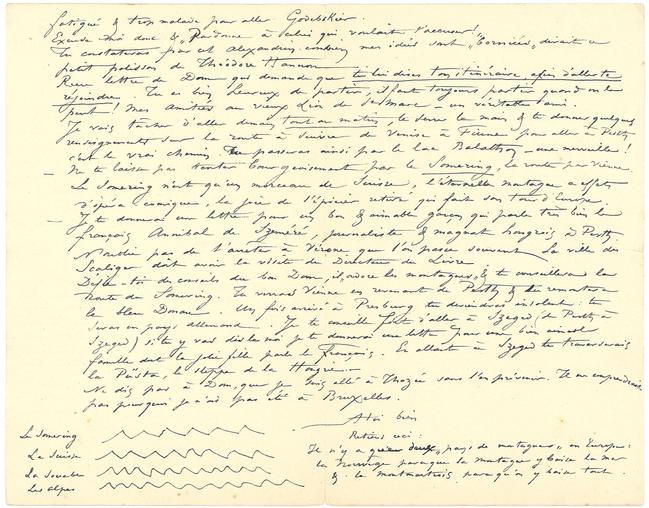 fatigué & trop malade pour aller Godebskier.
Excuse moi donc & "Pardonne à celui qui voulait t'accuser!
Tu constateras par cet alexandrin combien mes idées sont "bornées" dirait ce
petit polisson de Théodore Hannon
Reçu lettre de Dom qui demande que tu lui dises ton itinéraire, afin d'aller te
rejoindre. Tu es bien heureux de partir, il faut toujours partir quand on le
peut! Mes Amitiés au vieux Léon de - un véritable ami.
Je vais tâcher d'aller demain tout au matin, te serrer la main & te donner quelques
renseignements sur la route à suivre de Venise à Fiume pour aller à Pesth
c'est le vrai chemin. Tu passeras ainsi par le lac Balathon - une merveille!
Ne te laisse pas tenter bourgeoisement par le Somering, la route par Vienne.
Le Somering n'est qu'un morceau de Suisse, l'éternelle montagne à effets
d'opéra comique, la joie de l'épicier retiré qui fait son tour d'Europe.
Je te donnerai une lettre pour un bon & aimable garçon qui parle très bien le
français Annibal de Szemeré, journaliste & magnat hongrois à Pesth
N'oublie pas de t'arrêter à Vérone que l'on passe souvent. La ville des
Scaliger doit avoir la visite du Directeur du Livre
Défie-toi des conseils du bon Dom, il adore les montagnes, & te conseillera la
route du Somering. Tu verras Vienne en revenant de Pesth & tu remonteras
le bleu Danube. Un fois arrivé à Presburg tu deviendras insolent: tu
seras en pays allemand. Je te conseille fort d'aller à Szeged (de Pesth à
Szeged) si tu y vais dis-le moi je te donnerai une lettre pour une bien aimable
famille dont la jolie fille parle le français. En allant à Szeged tu traverserais
la Püsta, le steppe de la Hongrie -
Ne dis pas à Dom, que je suis allé à Thozée sans l'en prévenir. Il ne comprendrait
pas pourquoi je n'ai pas été à Bruxelles.
A toi bien
Retiens ceci:
Il n'y a que deux "pays de montagnes" en Europe:
la Norwège parceque la montagne y baise la mer
& le Montmartrois, parcequ'on y baise tout.
Le Somering
La Suisse
La Souabe
Les Alpes